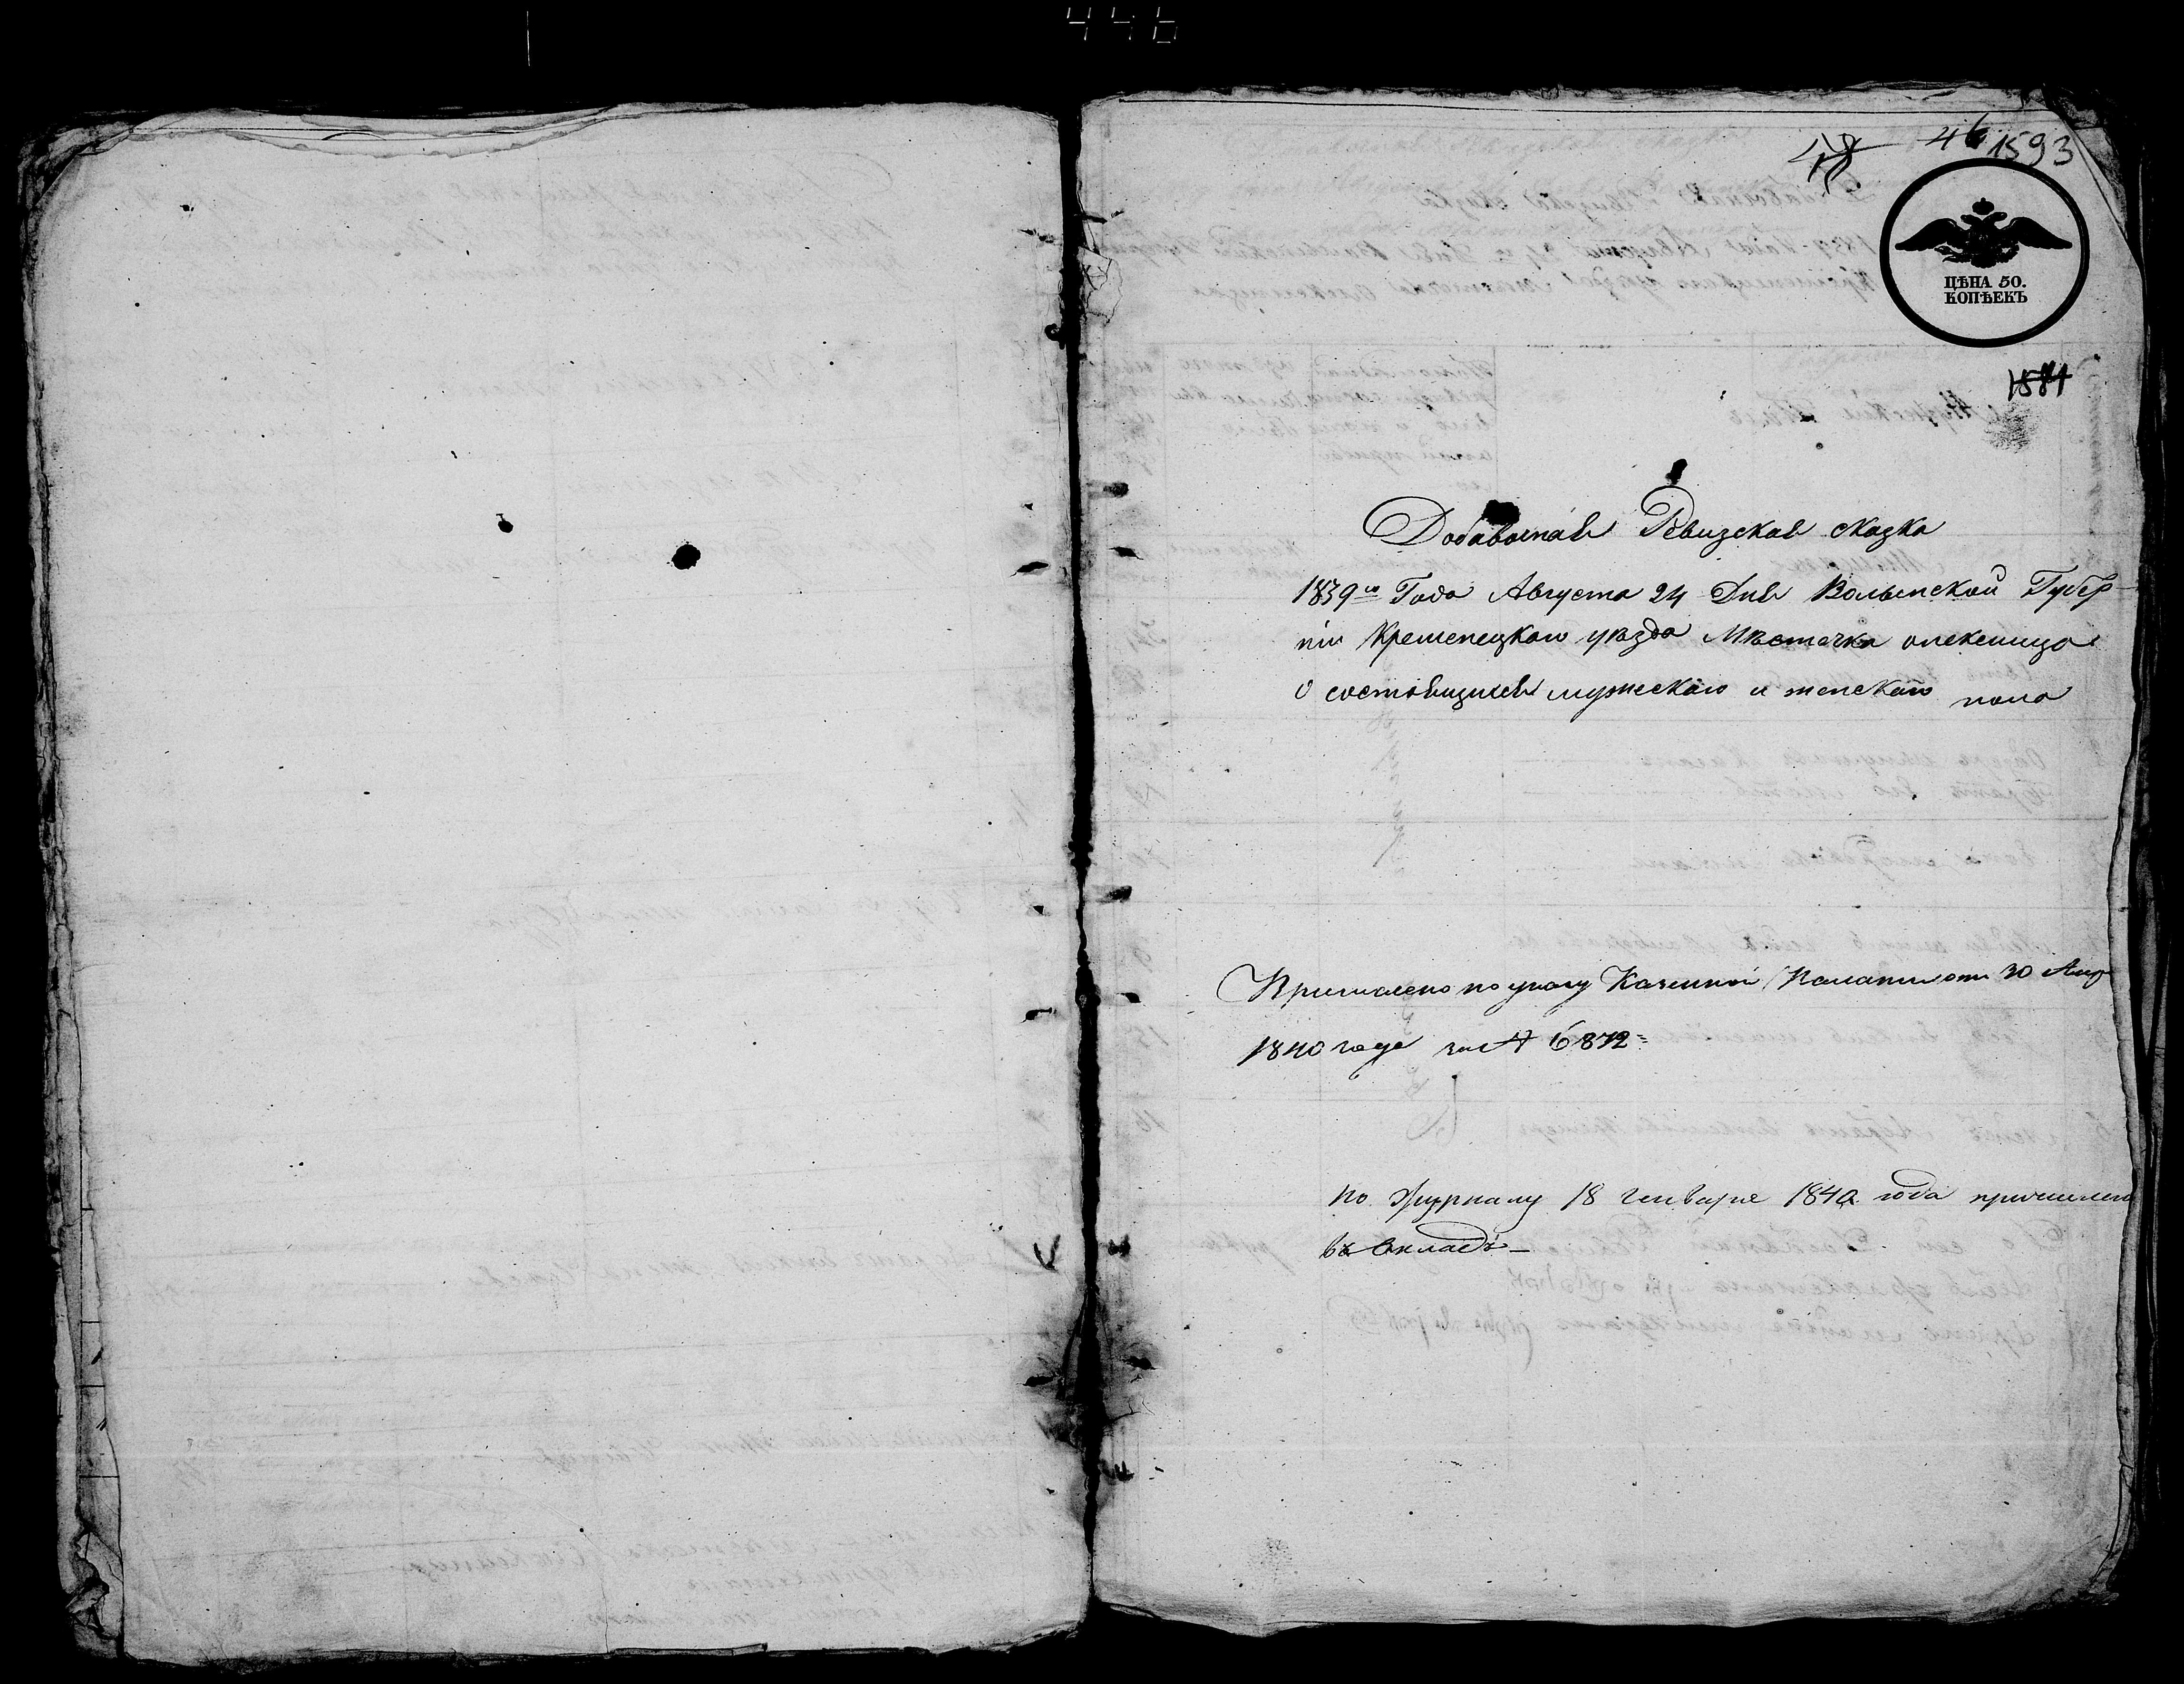 446
46
1593
ЦѢНА 50.
КОПѢЕКЪ
1581
Добавочная Ревизская сказка
1839го Года Августа 24 Дня Волынской Губер-
нiи Кременецкаго уѣзда Мѣстечка олексинца
О состоящихъ мужескаго и женскаго пола
Причислено по указу Казенной Палаты от 30 Апр
1840 года за № 6872
по Журналу 18 генваря 1840 года причислена
въ Окладъ